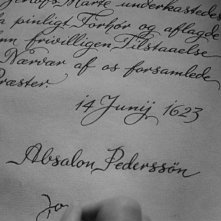 Marte underkastede
pinligt Forhör og aflagde
frivilligen Tilstaaelse
Nærvær af os forsamlede
Præster.
14 Junij 1623
Absalon Pederssön